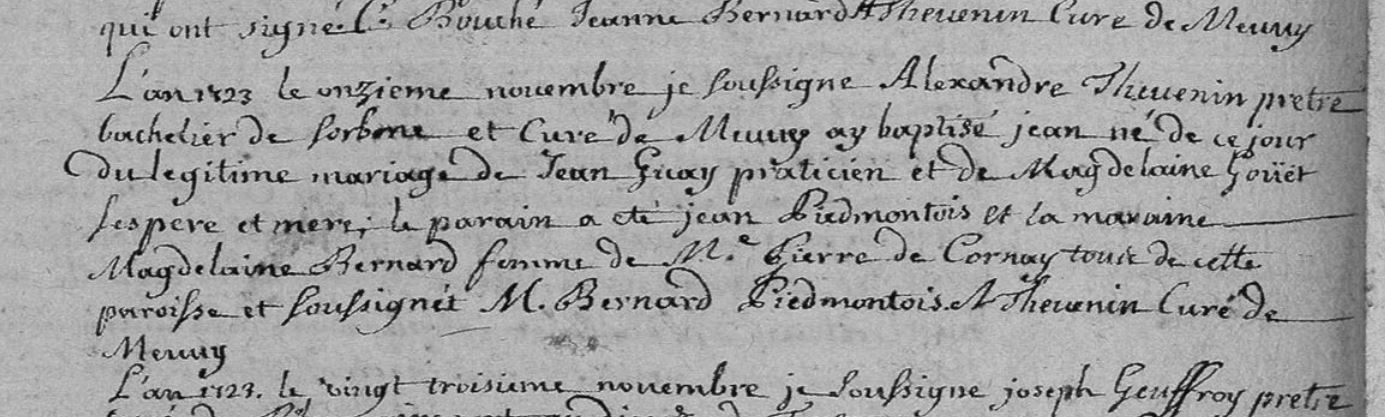 qui ont signé. C. Bouché Jeanne Bernard A Thevenin Curé de Meuuy
L'an 1723 le onzieme nouembre je soussigne Alexandre Theuenin pretre
bachelier de sorbone et Curé de Meuuy ay baptisé jean né de ce jour
Du legitime mariage de Jean Guay praticien et de Magdelaine Goüet
ses pere et mere; le parain a eté jean Piedmontois et la maraine
Magdelaine Bernard femme de M.e Pierre de Cornay tous de cette
paroisse et soussignét M. Bernard Piedmontois. A Theuenin Curé de
Meuuy
L'an 1723. le vingt troisieme nouembre je soussigne joseph Geuffroy pretre